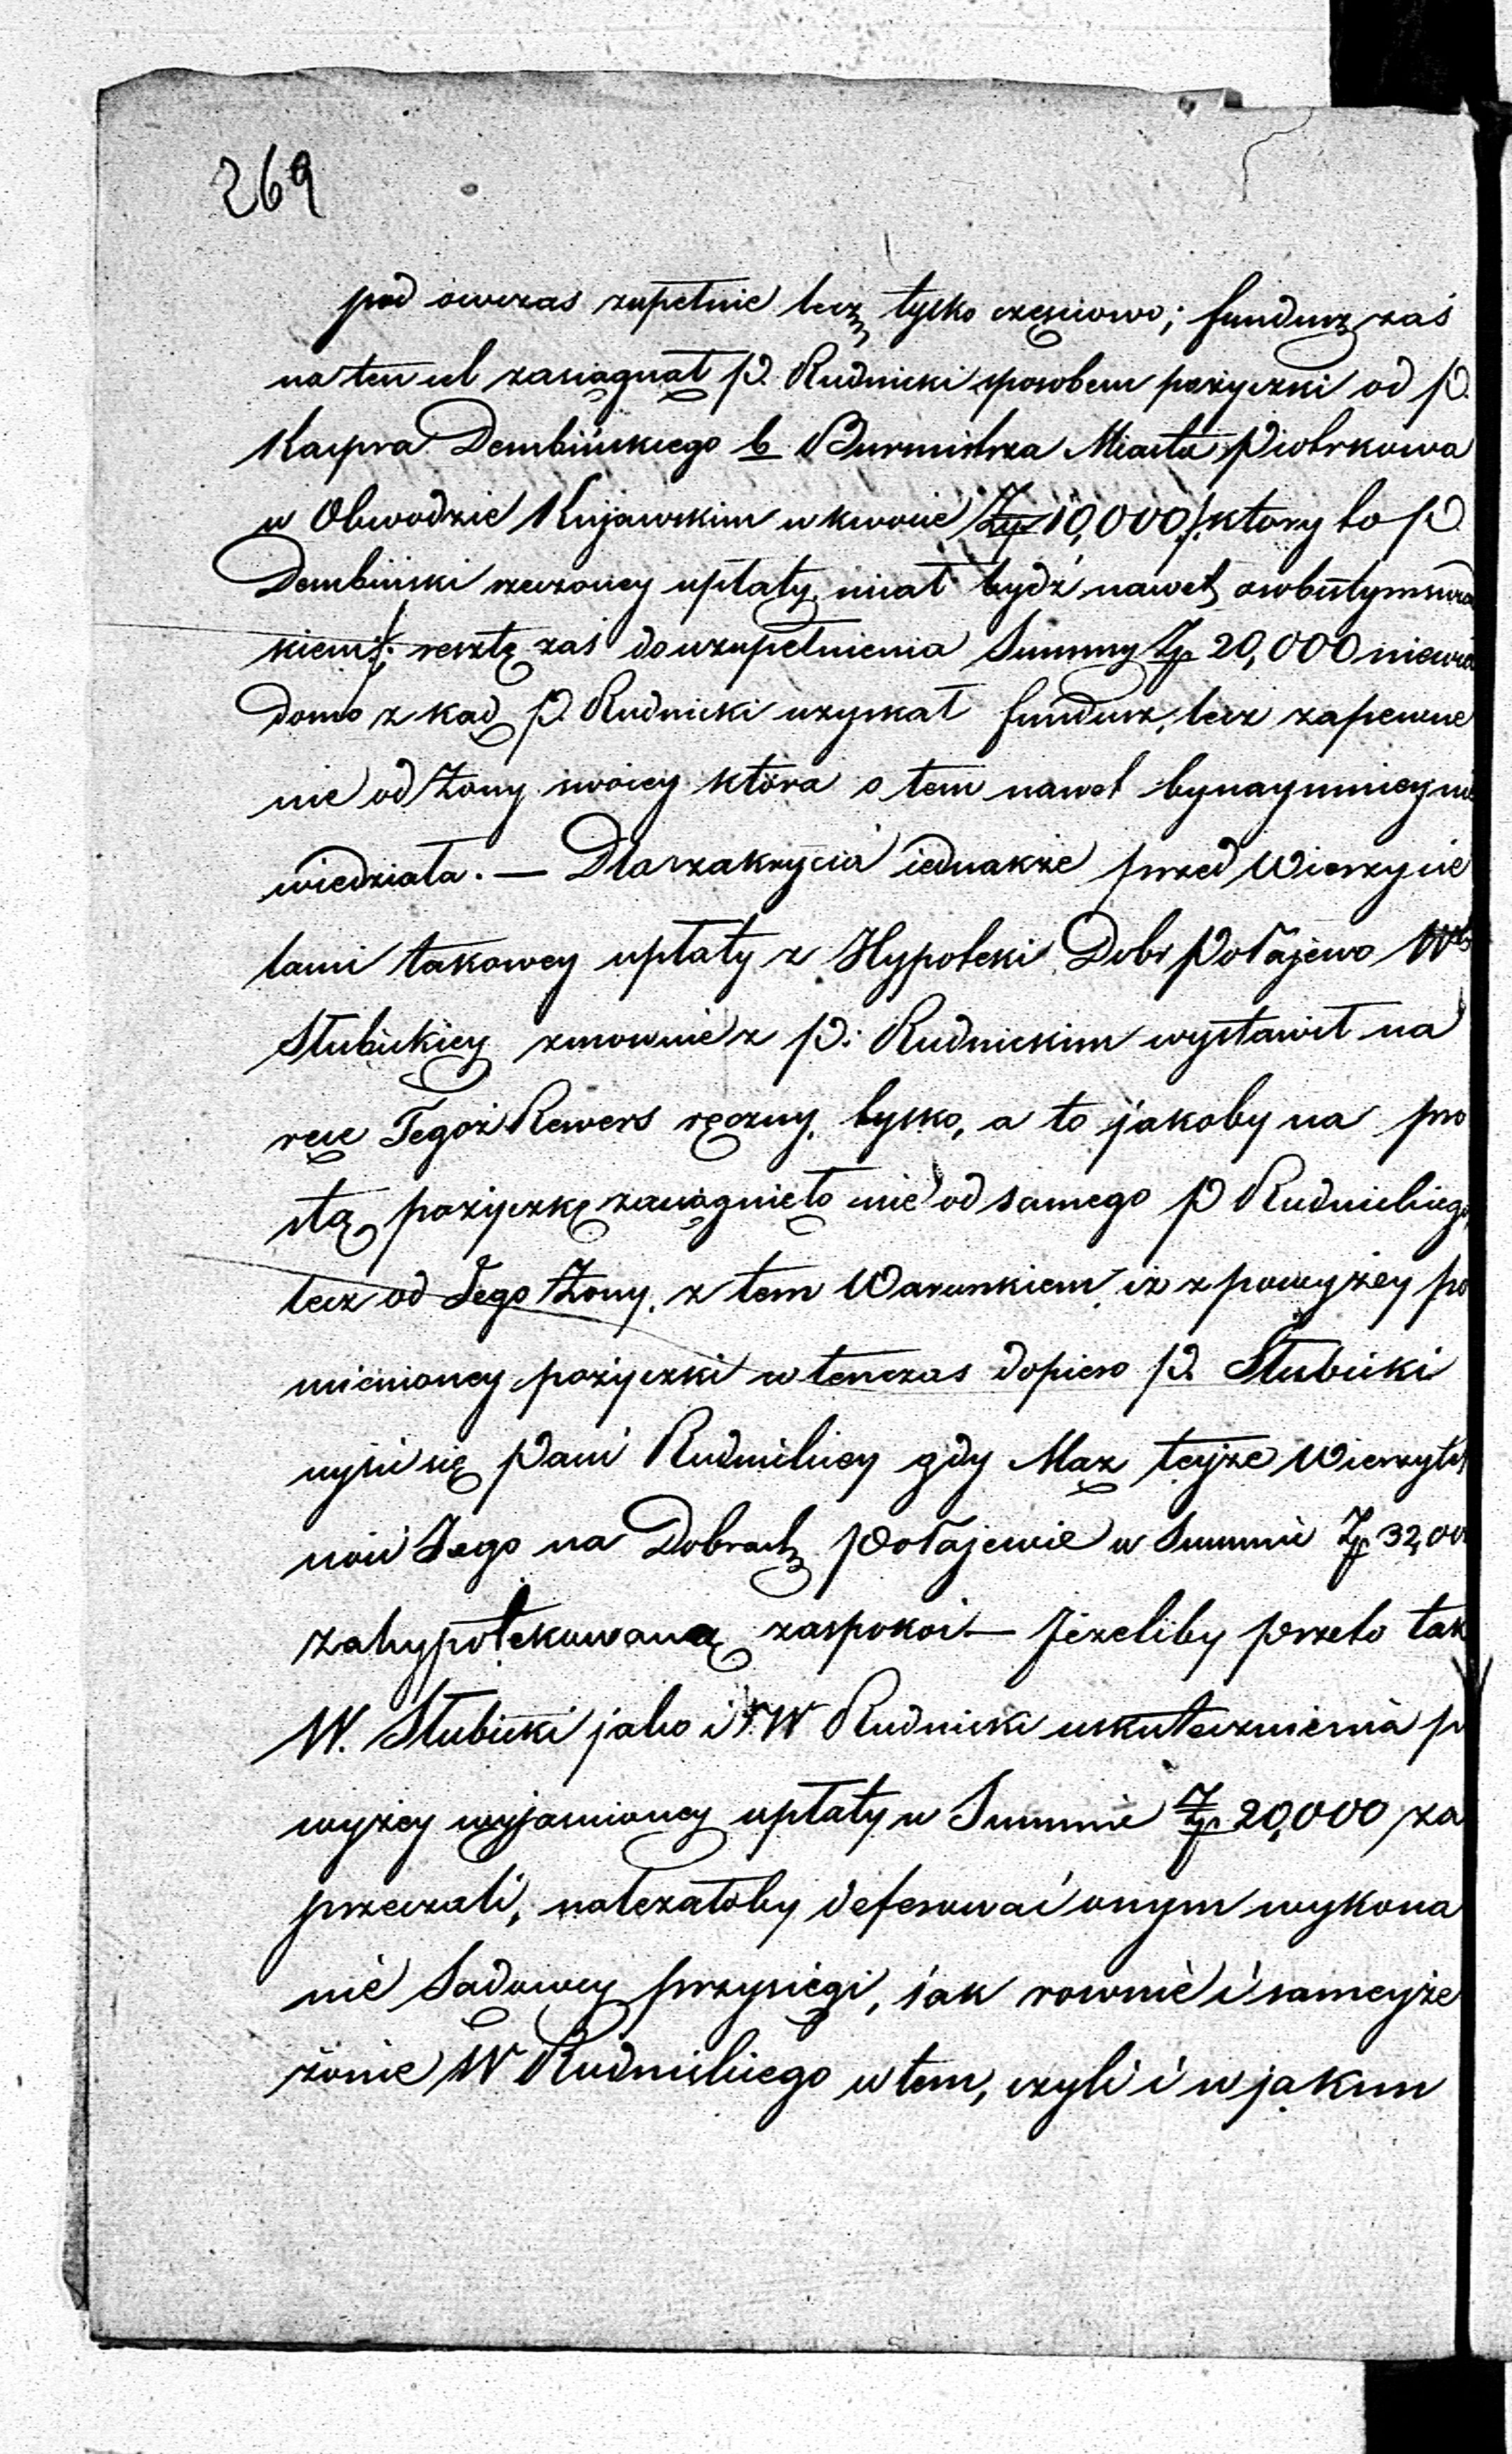 269
pod owczas zupełnie lecz tylko częsciowo; fundusz zaś
na ten cel zasiągnął P. Rudnicki sposobem pożyczki od P.
Kacpra Dembińskiego b Burmistrza Miasta Piotrkowa
w Obwodzie Kujawskim w kwocie Zp 10,000 /: ktory to P.
Dembiński rzeczoney upłaty, miał bydź nawet osobistym swiad
kiem :/ resztę zaś do uzupełnienia Summy Zp 20,000 niewia
domo z kąd P. Rudnicki uzyskał fundusz, lecz zapewne
nie od Żony swoiey która o tem nawet bynaymniey nie
wiedziała. — Dla zakrycia iednakże przed Wierzycie
lami takowey upłaty z Hypoteki Dobr Połajewo W
Słubickiey zmownie z P: Rudnickim wystawił na
ręce Tegoż Rewers ręczny, tylko, a to jakoby na pro
stą pożyczkę zaciągniętą nie od samego P Rudnickiego
lecz od Jego Żony, z tem Warunkiem, iż z powyżey po
mienioney pożyczki w tenczas dopiero P. Słubicki
uyści się Pani Rudnickiey gdy Mąż teyże Wierzytel
ność Jego na Dobrach Połajewie w Summie Zp 32,00
zahypotekowaną zaspokoi — Jeżeliby przeto tak
W. Słubicki jako i W Rudnicki uskutecznienia po
wyżey wyjaśnioney upłaty w Summie Zp 20,000 za
przeczali, należałoby deferować onym wykona
nie Sądowey przysięgi, iak rownie i sameyże
żonie W Rudnickiego w tem, czyli i w jakim